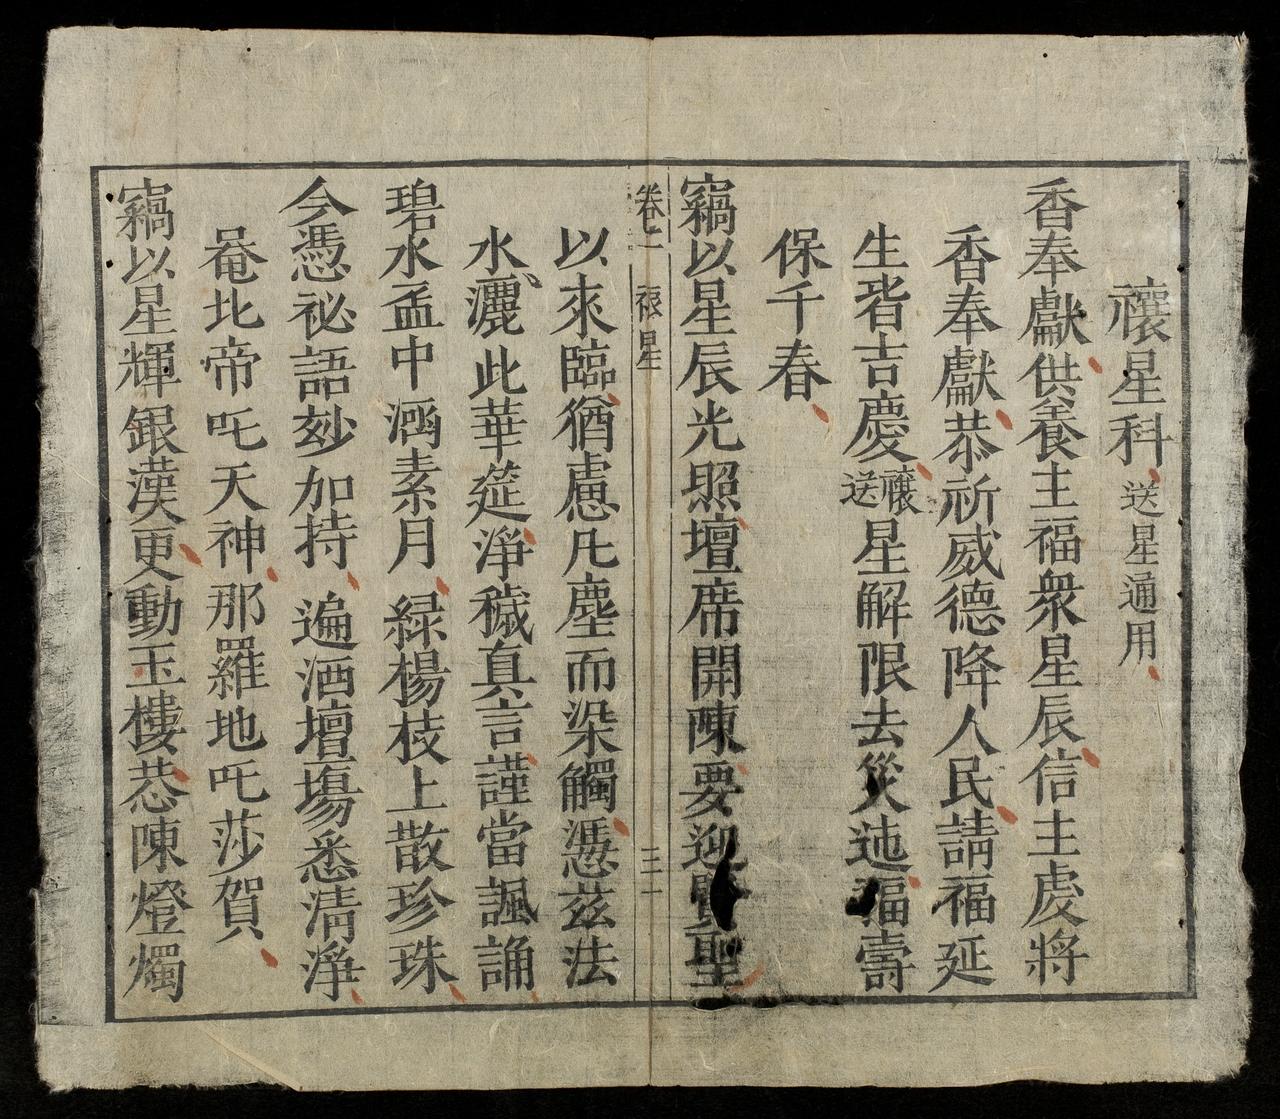 禳星科送星通用
香奉獻供養主福衆星辰信主虔將
香奉獻恭祈威德降人民請福延
生者吉慶禳送星解限去災迍福壽
保千春
竊以星辰光照壇席開陳要迎賢聖
卷二 禳星 三一
以來臨猶慮凡塵而染觸憑茲法
水灑此華筵淨穢真言謹當諷誦
碧水盂中涵素月緑楊枝上散珍珠
今憑祕語玅加持遍洒壇塲悉清淨
唵北帝吒天神那羅地吒莎賀
竊以星輝銀漢更動玉樓恭陳燈燭